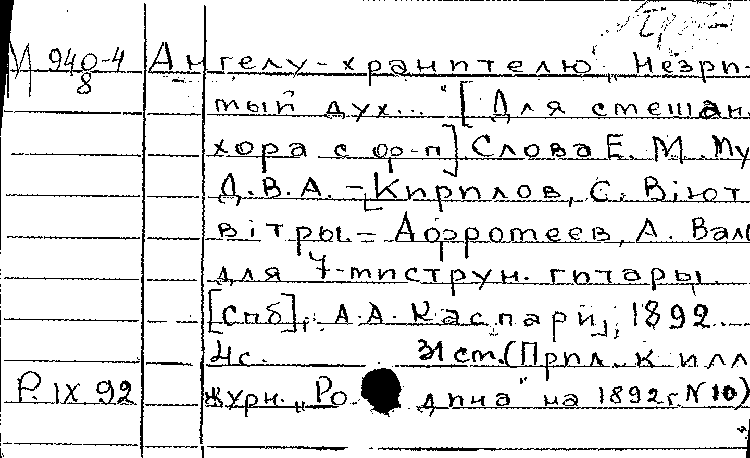 М 940-4 Ангелу-хранителю „Незри-
8 тый дух..." [Для смешан
хора с ф-п] Слова Е. М. Му
Д.В.А. – Кириллов, С. Віют
вітры. – Дофротеев, А. Вал
для 7-тиструн. гитары
[Спб], А.А. Каспари, 1892
4с. 31 ст. (Прил. к илл
P. IX 92 журн. „Родина" на 1892 г. № 10)